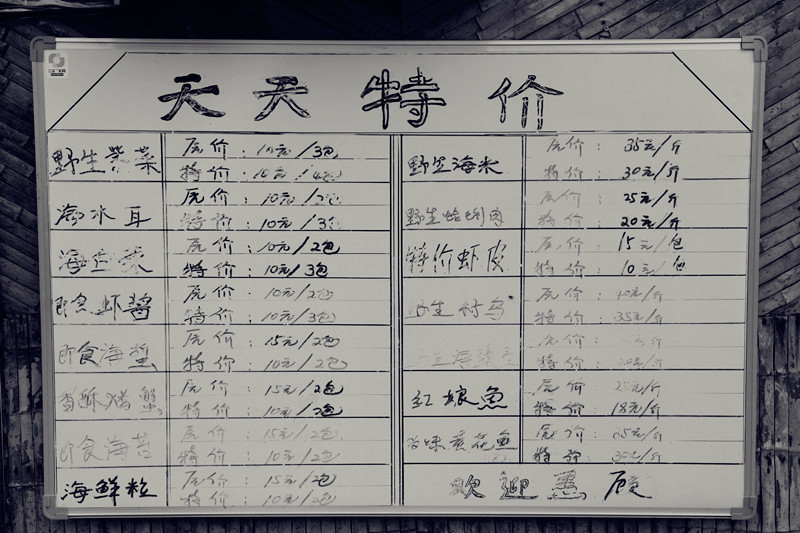 天天特价
野生紫菜
原价:10元/3包
特价:10元/4包
海木耳
原价:10元/2包
特价:10元/3包
海白菜
原价:10元/2包
特价:10元/3包
即食虾酱
原价:10元/2包
特价:10元/3包
即食海蜇
原价:15元/2包
特价:10元/2包
香酥猪蟹
原价:15元/2包
特价:10元/2包
即食海苔
原价:15元/2包
特价:10元/2包
海鲜粒
原价:15元/2包
特价:10元/2包
野生海米
原价:35元/斤
特价:30元/斤
野生蛤蜊肉
原价:25元/斤
特价:20元/斤
特价虾皮
原价:15元/包
特价:10元/包
野生
原价:40元/斤
特价:35元/斤
原价:
特价:
红娘鱼
原价:25元/斤
特价:18元/斤
黄花鱼
原价:
特价:
欢迎惠顾